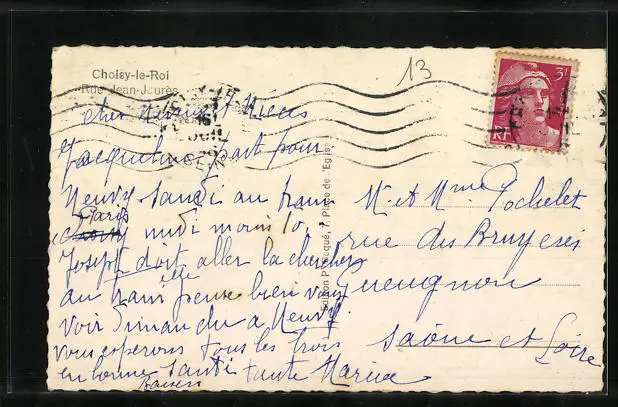 Choisy-le-Roi
Rue Jean-Jaurès
13
3F
RF
cher Neveu et Nièces
Jacqueline part pour
Neuvy samdi au train
Paris midi moins 10.
Joseph doit aller la chercher
au train elle pense bien vous
voir Dimanche a Neuvy
vous esperons tous les trois
en bonne santé tante Maria
Baisers
Edition P. 7, Place de l'Eglise
M. et Mme Pochelet
rue des Bruyeres
Gueugnon
Saône et Loire